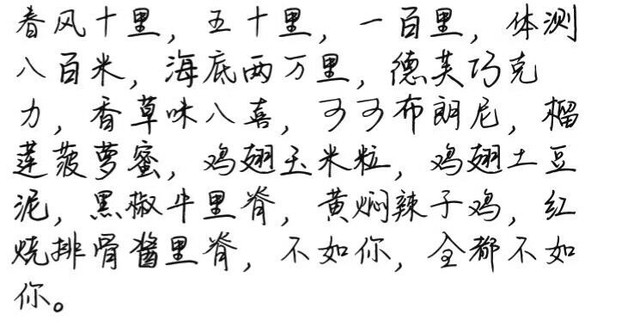 春风十里，五十里，一百里，体测
八百米，海底两万里，德芙巧克
力，香草味八喜，可可布朗尼，榴
莲菠萝蜜，鸡翅玉米粒，鸡翅土豆
泥，黑椒牛里脊，黄焖辣子鸡，红
烧排骨酱里脊，不如你，全都不如
你。